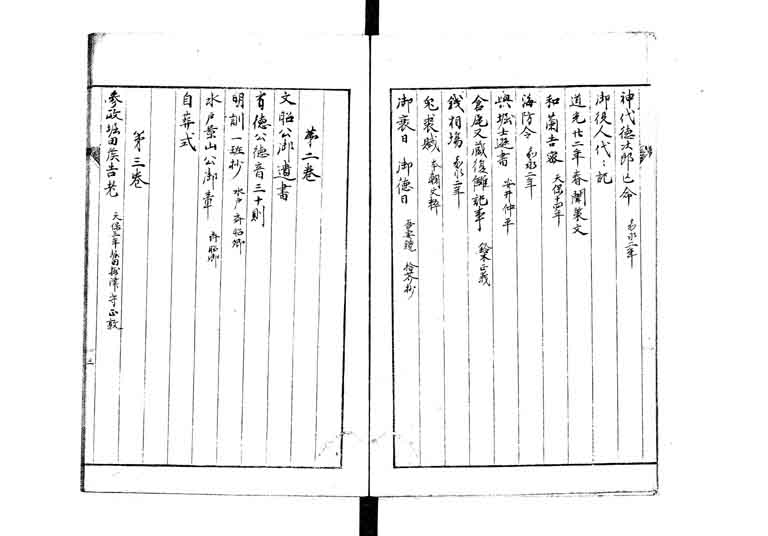 神代徳次郎亡命 嘉永二年
御役人代々記
道光廿二年春闈策文
和蘭告密 天保十四年
海防令 嘉永二年
與堀士遊書 安井仲平
倉庵又蔵復讎記事 鈴木正義
銭相場 嘉永二年
兎裘賦 本朝文粋
御衰日 御徳日 吾妻鏡 拾芥抄
第二巻
文昭公御遺書
有徳公徳音三十則
明訓一班抄 水戸斉昭卿
水戸景山公御章 斉昭卿
自葬式
第三巻
参政堀田侯告老 天保三年 堀田摂津守正敦
三